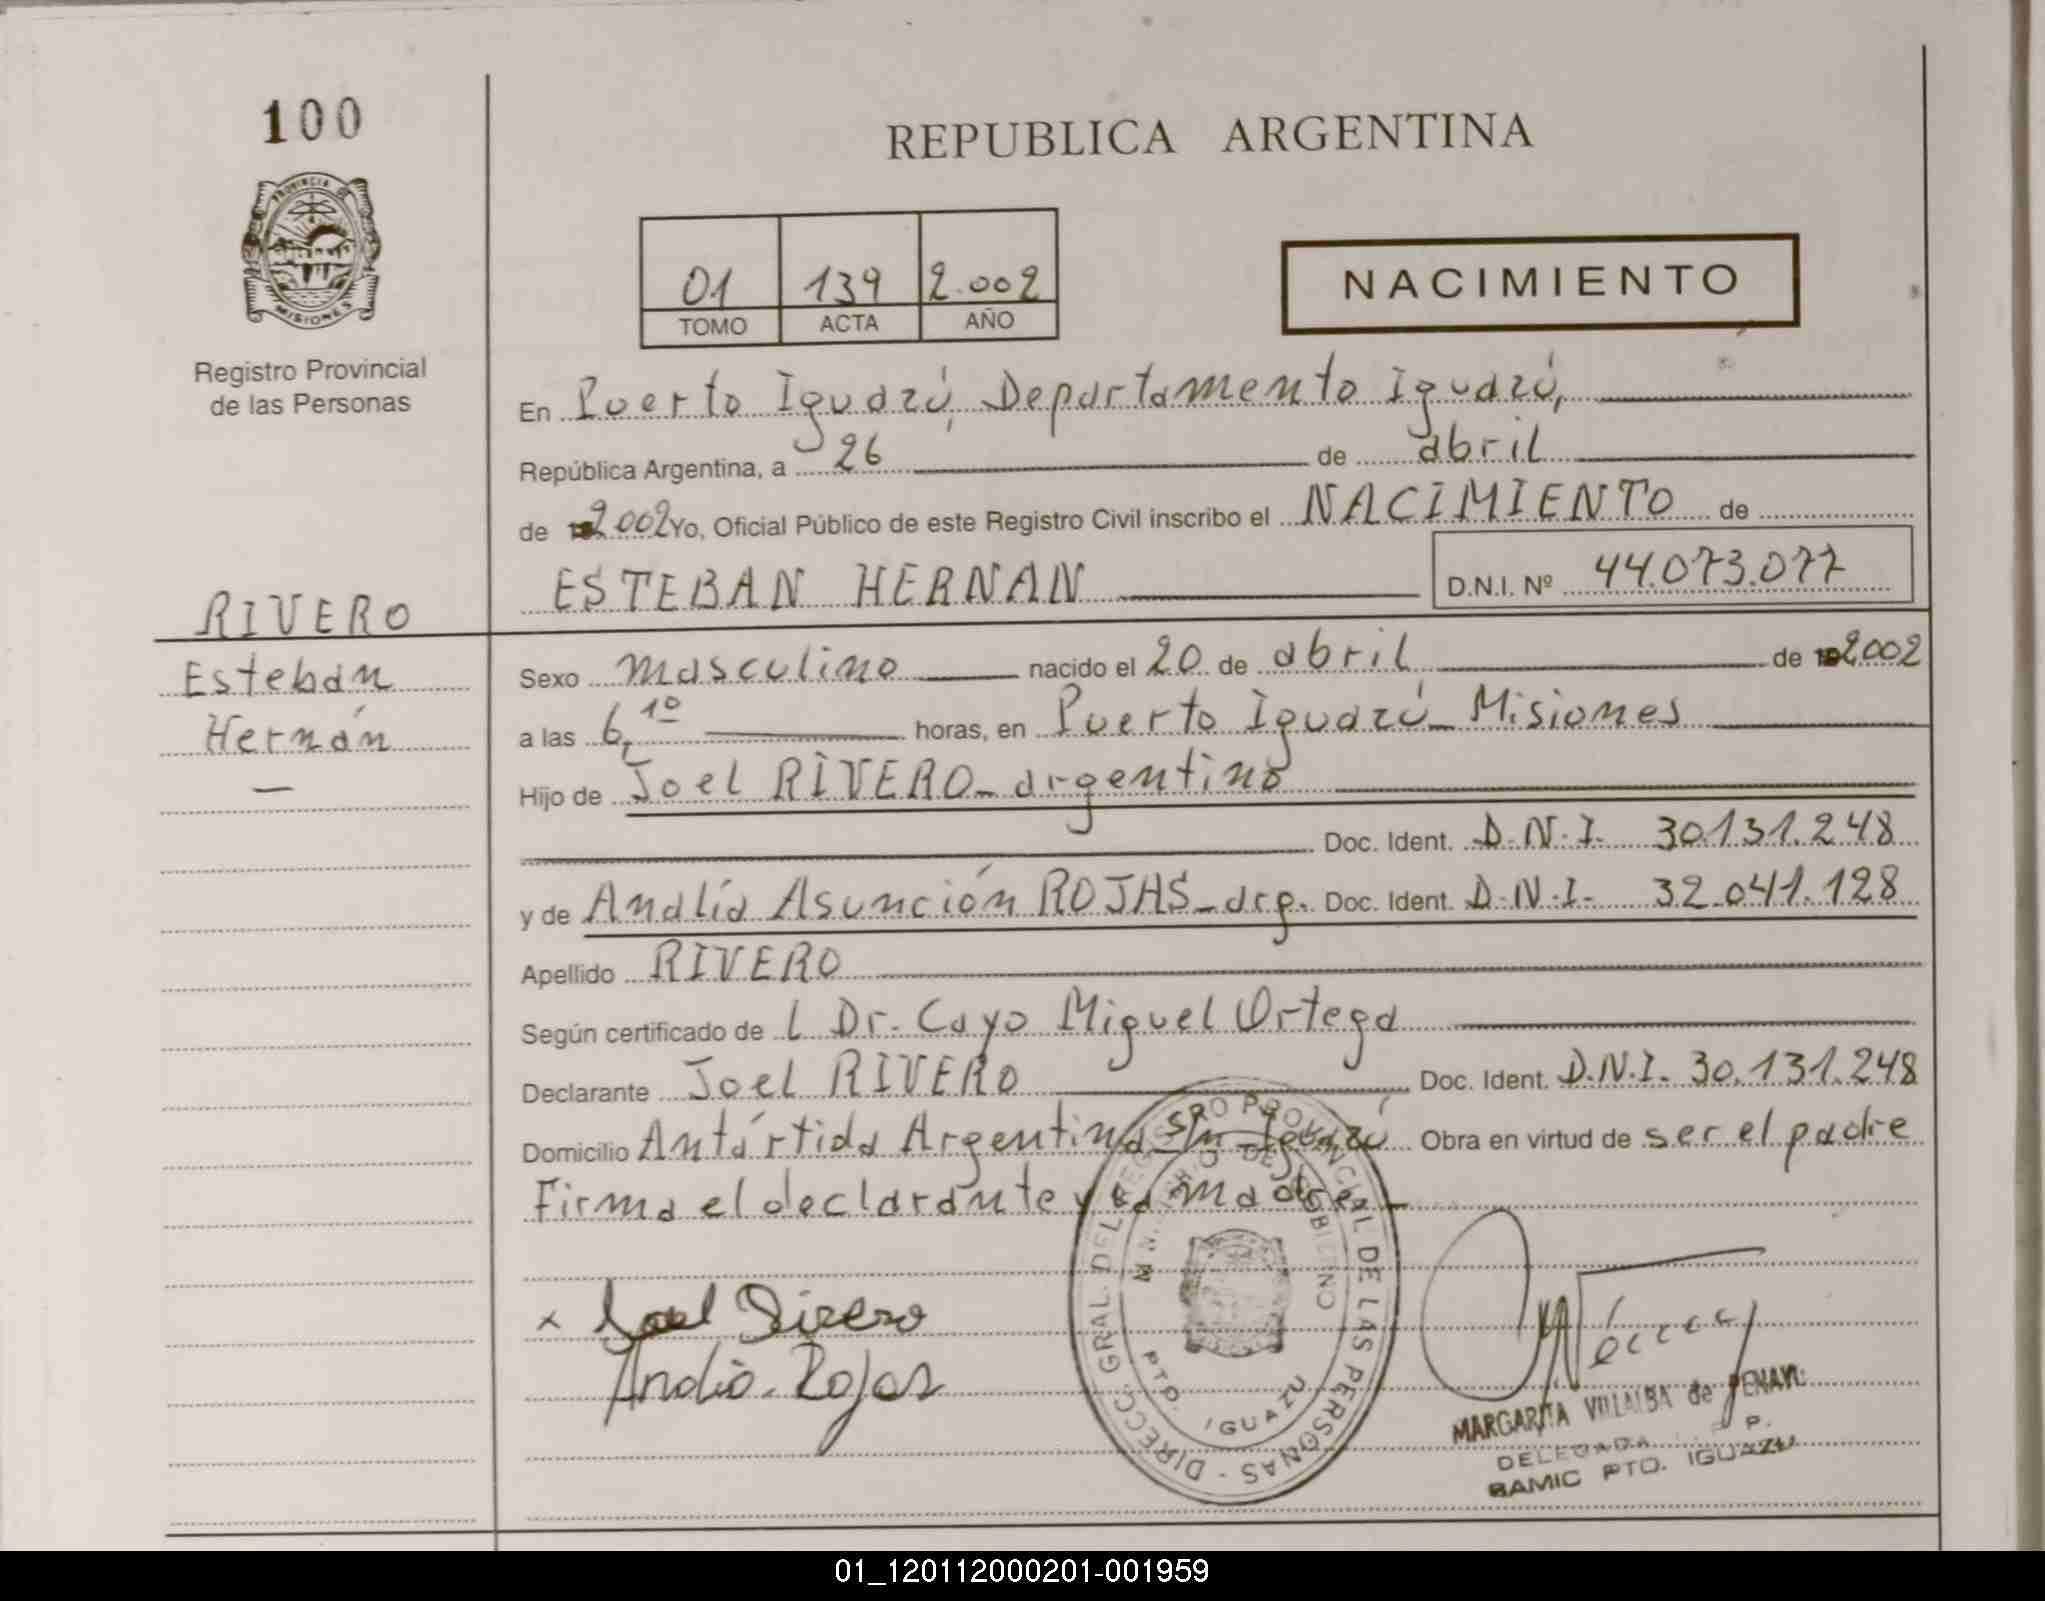 100
REPUBLICA ARGENTINA
PROVINCIA DE
MISIONES
01 139 2.002
TOMO ACTA AÑO
NACIMIENTO
Registro Provincial
de las Personas
En Puerto Iguazú, Departamento Iguazú,
República Argentina, a 26 de abril
de 2002 Yo, Oficial Público de este Registro Civil inscribo el NACIMIENTO de
ESTEBAN HERNAN D.N.I. Nº 44.073.077
RIVERO
Esteban
Hernán
Sexo masculino nacido el 20 de abril de 2002
a las 6,10 horas, en Puerto Iguazú_ Misiones
Hijo de Joel RIVERO_ argentino
Doc. Ident. D.N.I. 30.131.248
y de Analía Asunción ROJAS_arg. Doc. Ident. D.N.I. 32.041.128
Apellido RIVERO
Según certificado de l Dr. Cayo Miguel Ortega
Declarante Joel RIVERO Doc. Ident. D.N.I. 30.131.248
Domicilio Antártida Argentina s/n_Iguazú Obra en virtud de ser el padre
Firma el declarante y la madre._
Joel Rivero
Analia. Rojas
DIRECC. GRAL. DEL REGISTRO PROVINCIAL DE LAS PERSONAS -
MINISTERIO DE GOBIERNO
PTO. IGUAZU
MARGARITA VILLALBA de
DELEGADA
BAMIC PTO. IGUAZU
01_120112000201-001959